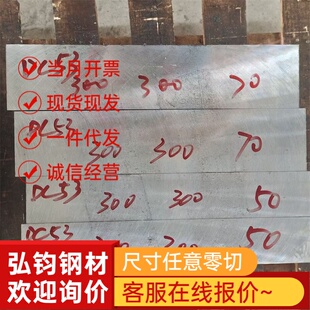 DC53 300 300 70
当月开票
现货现发
DC53 300 300 70
一件代发
诚信经营
DC53 300 300 50
DC53 300 300 50
弘钧钢材
欢迎询价
尺寸任意零切
客服在线报价~